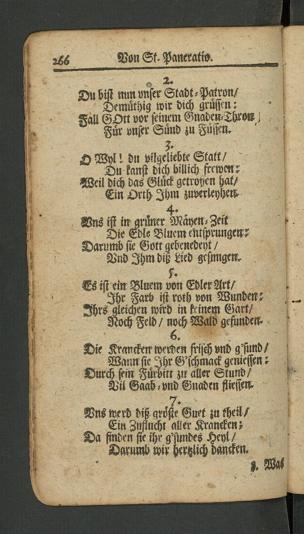 266 Von St. Pancratio.
2.
Du bist nun vnser Stadt-Patron/
Demüthig wir dich grüssen:
Fall GOtt vor seinem Gnaden-Thron/
Für vnser Sünd zu Füssen.
3.
O Wyl! du vilgeliebte Statt/
Du kanst dich billich frewen:
Weil dich das Glück getroffen hat/
Ein Orth Ihm zuverleyhen.
4.
Vns ist in grüner Mäyen-Zeit
Die Edle Bluem entsprungen:
Darumb sie Gott gebenedeyt/
Vnd Ihm diß Lied gesungen.
5.
Es ist ein Bluem von Edler Art/
Ihr Farb ist roth von Wunden:
Ihrs gleichen wird in keinem Gart/
Noch Feld/ noch Wald gefunden.
6.
Die Krancken werden frisch vnd g'sund/
Wann sie Ihr G'schmack geniessen:
Durch sein Fürbitt zu aller Stund/
Vil Gaab- vnd Gnaden fliessen.
7.
Vns werd diß gröste Guet zu theil/
Ein Zuflucht aller Krancken:
Da finden sie ihr g'sundes Heyl/
Darumb wir hertzlich dancken.
8. Was